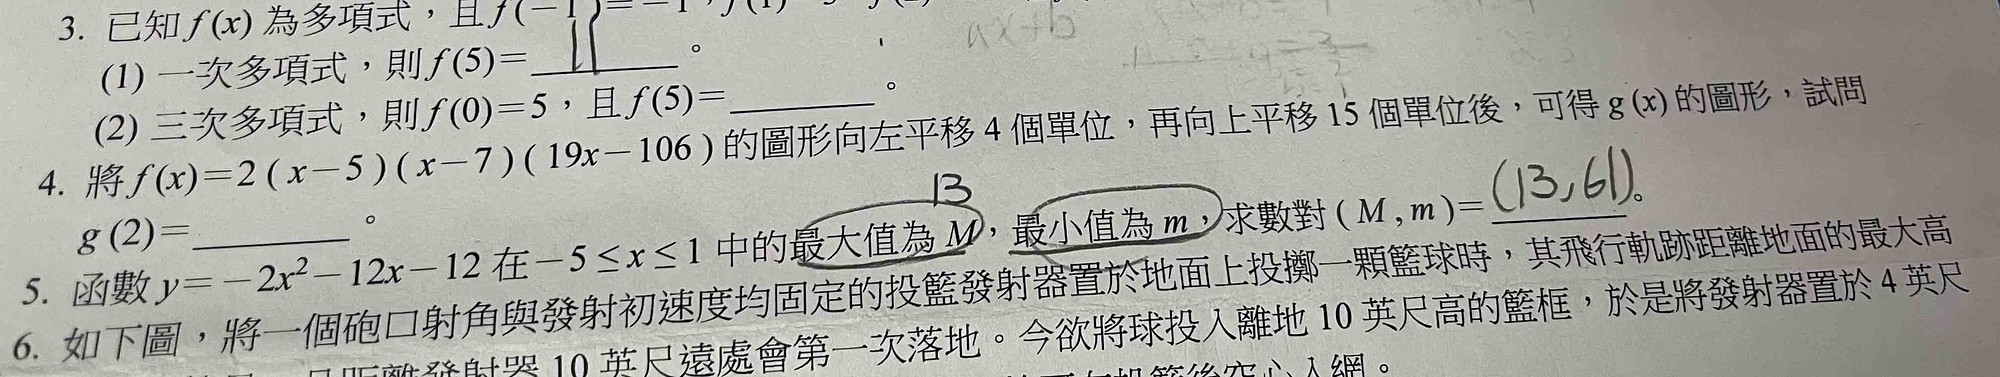 3. 已知 f(x) 為多項式，且 f(−1)=−1，f(1)
(1) 一次多項式，則 f(5)=______。
(2) 三次多項式，則 f(0)=5，且 f(5)=______。
4. 將 f(x)=2(x−5)(x−7)(19x−106) 的圖形向左平移 4 個單位，再向上平移 15 個單位後，可得 g(x) 的圖形，試問
g(2)=______。
13
5. 函數 y=−2x²−12x−12 在 −5≤x≤1 中的最大值為 M，最小值為 m，求數對 (M, m)=(13,61)。
6. 如下圖，將一個砲口射角與發射初速度均固定的投籃發射器置於地面上投擲一顆籃球時，其飛行軌跡距離地面的最大高
10 英尺遠處會第一次落地。今欲將球投入離地 10 英尺高的籃框，於是將發射器置於 4 英尺